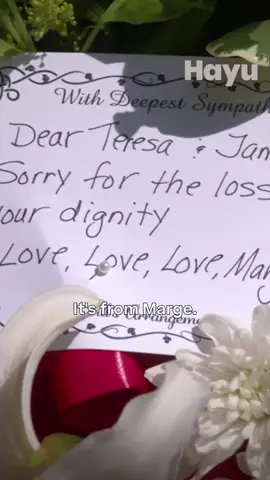 Hayu
With Deepest Sympath
Dear Teresa & Jam
Sorry for the loss
your dignity
Love, Love, Love, Marg
It's from Marge.
Arrangeme